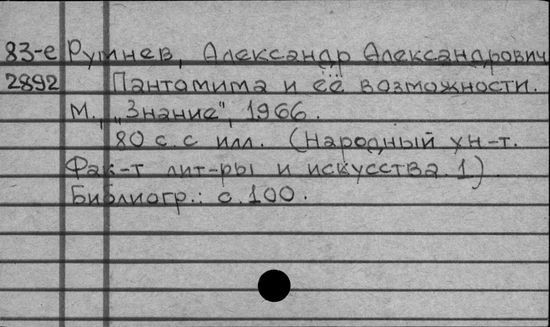 83-е Румнев, Александр Александрович
2892 Пантомима и её возможности.
М., „Знание", 1966.
80 с. с илл. (Народный ун-т.
Фак-т лит-ры и искусства. 1)
Библиогр.: с. 100.